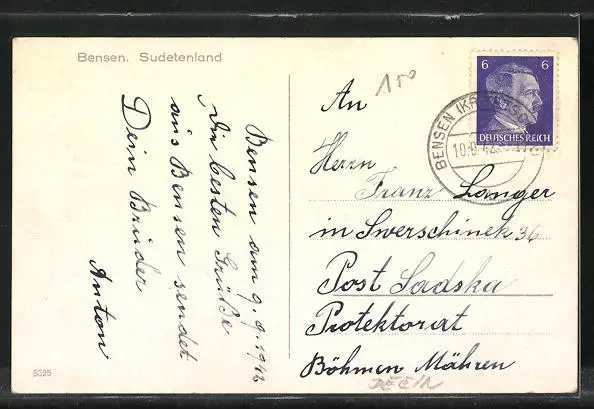 Bensen. Sudetenland
Bensen am 9.9.1942
Die besten Grüße
aus Bensen sendet
Dein Bruder
Anton
5325
150
6 6
DEUTSCHES REICH
BENSEN (KR.
10.9.42
An
Herrn
Franz Langer
in Swerschinek 36
Post Sadska
Protektorat
Böhmen Mähren
DECIN